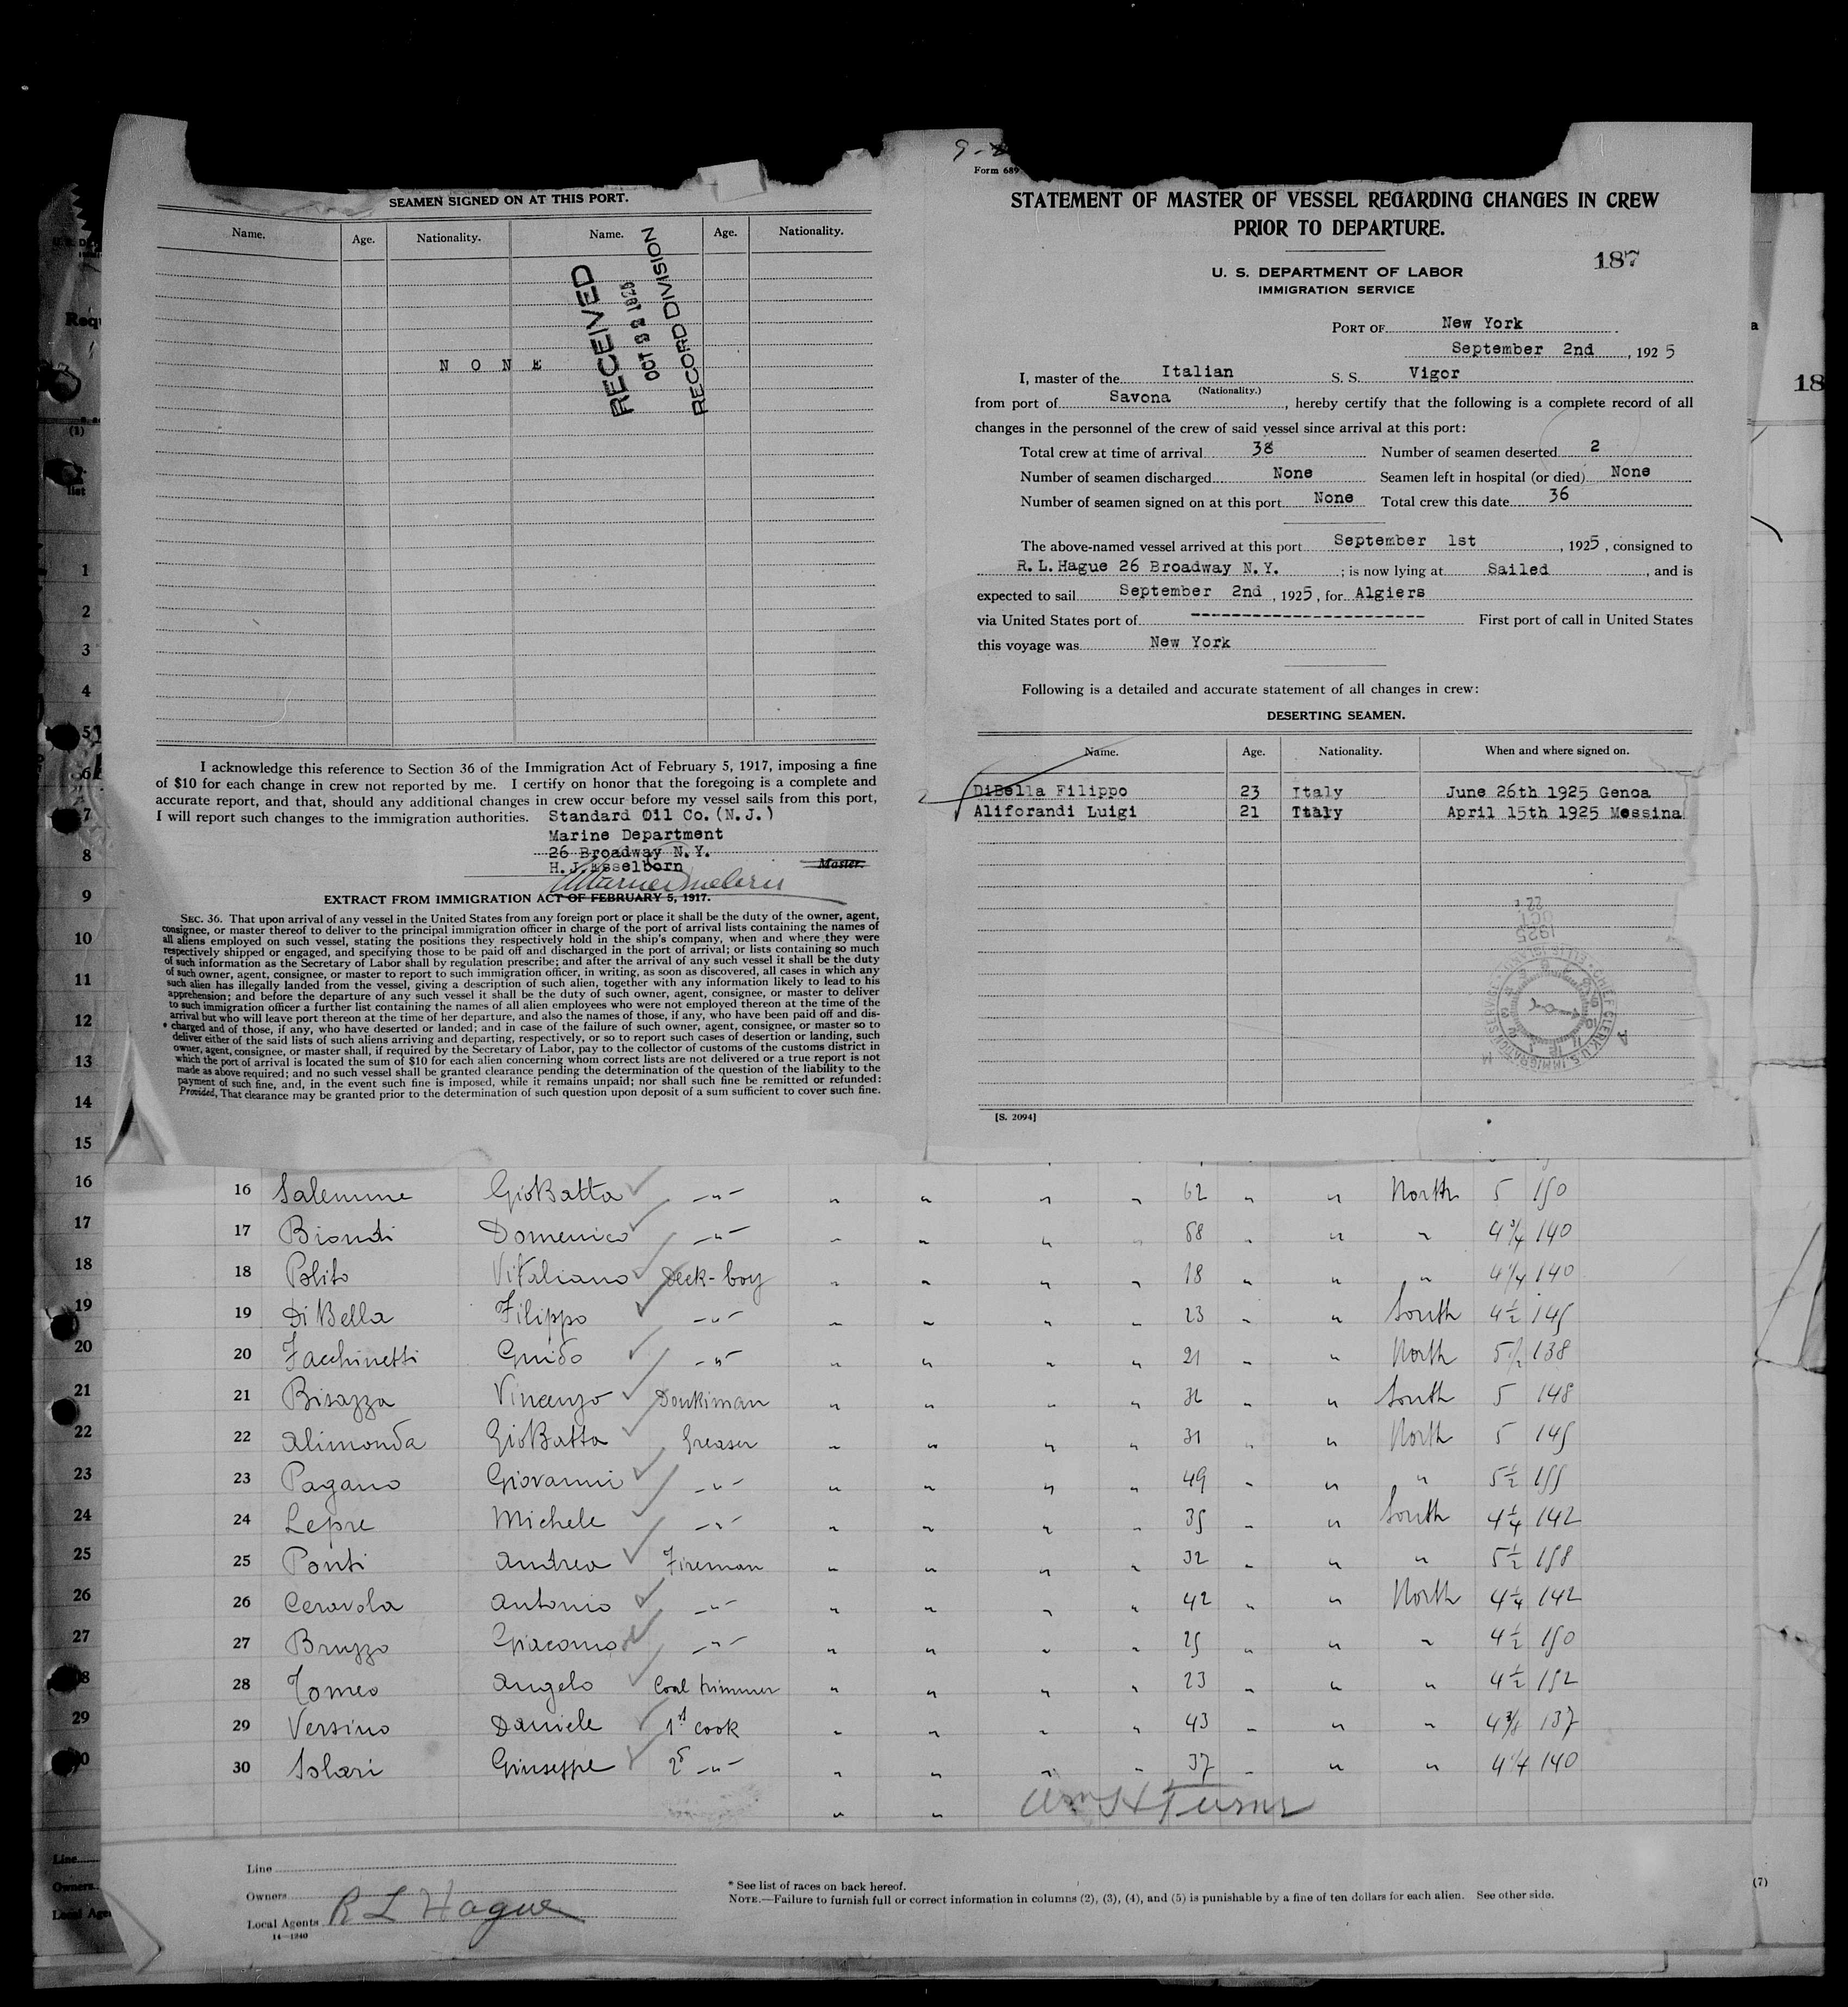 SEAMEN SIGNED ON AT THIS PORT.
Name. Age. Nationality. Name. Age. Nationality.
N O N E
RECEIVED
OCT 22 1925
RECORD DIVISION
I acknowledge this reference to Section 36 of the Immigration Act of February 5, 1917, imposing a fine
of $10 for each change in crew not reported by me. I certify on honor that the foregoing is a complete and
accurate report, and that, should any additional changes in crew occur before my vessel sails from this port,
I will report such changes to the immigration authorities. Standard Oil Co. (N.J.)
Marine Department
26 Broadway N.Y.
H.J. Esselborn Master.
EXTRACT FROM IMMIGRATION ACT OF FEBRUARY 5, 1917.
SEC. 36. That upon arrival of any vessel in the United States from any foreign port or place it shall be the duty of the owner, agent,
consignee, or master thereof to deliver to the principal immigration officer in charge of the port of arrival lists containing the names of
all aliens employed on such vessel, stating the positions they respectively hold in the ship's company, when and where they were
respectively shipped or engaged, and specifying those to be paid off and discharged in the port of arrival; or lists containing so much
of such information as the Secretary of Labor shall by regulation prescribe; and after the arrival of any such vessel it shall be the duty
of such owner, agent, consignee, or master to report to such immigration officer, in writing, as soon as discovered, all cases in which any
such alien has illegally landed from the vessel, giving a description of such alien, together with any information likely to lead to his
apprehension; and before the departure of any such vessel it shall be the duty of such owner, agent, consignee, or master to deliver
to such immigration officer a further list containing the names of all alien employees who were not employed thereon at the time of the
arrival but who will leave port thereon at the time of her departure, and also the names of those, if any, who have been paid off and dis-
charged and of those, if any, who have deserted or landed; and in case of the failure of such owner, agent, consignee, or master so to
deliver either of the said lists of such aliens arriving and departing, respectively, or so to report such cases of desertion or landing, such
owner, agent, consignee, or master shall, if required by the Secretary of Labor, pay to the collector of customs of the customs district in
which the port of arrival is located the sum of $10 for each alien concerning whom correct lists are not delivered or a true report is not
made as above required; and no such vessel shall be granted clearance pending the determination of the question of the liability to the
payment of such fine, and, in the event such fine is imposed, while it remains unpaid; nor shall such fine be remitted or refunded:
Provided, That clearance may be granted prior to the determination of such question upon deposit of a sum sufficient to cover such fine.
Form 689
STATEMENT OF MASTER OF VESSEL REGARDING CHANGES IN CREW
PRIOR TO DEPARTURE.
187
U. S. DEPARTMENT OF LABOR
IMMIGRATION SERVICE
PORT OF New York
September 2nd, 1925
I, master of the Italian S. S. Vigor
(Nationality.)
from port of Savona, hereby certify that the following is a complete record of all
changes in the personnel of the crew of said vessel since arrival at this port:
Total crew at time of arrival 38 Number of seamen deserted 2
Number of seamen discharged None Seamen left in hospital (or died) None
Number of seamen signed on at this port None Total crew this date 36
The above-named vessel arrived at this port September 1st, 1925, consigned to
R.L. Hague 26 Broadway N.Y.; is now lying at Sailed, and is
expected to sail September 2nd, 1925, for Algiers
via United States port of ------------------------ First port of call in United States
this voyage was New York
Following is a detailed and accurate statement of all changes in crew:
DESERTING SEAMEN.
Name. Age. Nationality. When and where signed on.
DiBella Filippo 23 Italy June 26th 1925 Genoa
Aliforandi Luigi 21 Italy April 15th 1925 Messina
[S. 2094]
16 Salemme GioBatta -"- " " " " 62 " " North 5 150
17 Biondi Domenico -"- " " " " 58 " " " 4 3/4 140
18 Polito Vitaliano Deck-boy " " " " 18 " " " 4 1/4 140
19 Di Bella Filippo -"- " " " " 23 " " South 4 1/2 145
20 Facchinetti Guido -"- " " " " 21 " " North 5 1/2 138
21 Bisazza Vincenzo Donkiman " " " " 32 " " South 5 148
22 Alimonda GioBatta Greaser " " " " 31 " " North 5 145
23 Pagano Giovanni -"- " " " " 49 " " " 5 1/2 155
24 Lepre Michele -"- " " " " 35 " " South 4 1/4 142
25 Ponti Andrea Fireman " " " " 32 " " " 5 1/2 158
26 Ceravola Antonio -"- " " " " 42 " " North 4 1/4 142
27 Bruzzo Giacomo -"- " " " " 25 " " " 4 1/2 150
28 Tomeo Angelo Coal trimmer " " " " 23 " " " 4 1/2 152
29 Versino Daniele 1st cook " " " " 43 " " " 4 3/4 137
30 Solari Giuseppe 2d -"- " " " " 37 " " " 4 1/4 140
" " Wm H Turner
Line
Owners
Local Agents R L Hague
14—1240
* See list of races on back hereof.
NOTE.—Failure to furnish full or correct information in columns (2), (3), (4), and (5) is punishable by a fine of ten dollars for each alien. See other side.
(7)